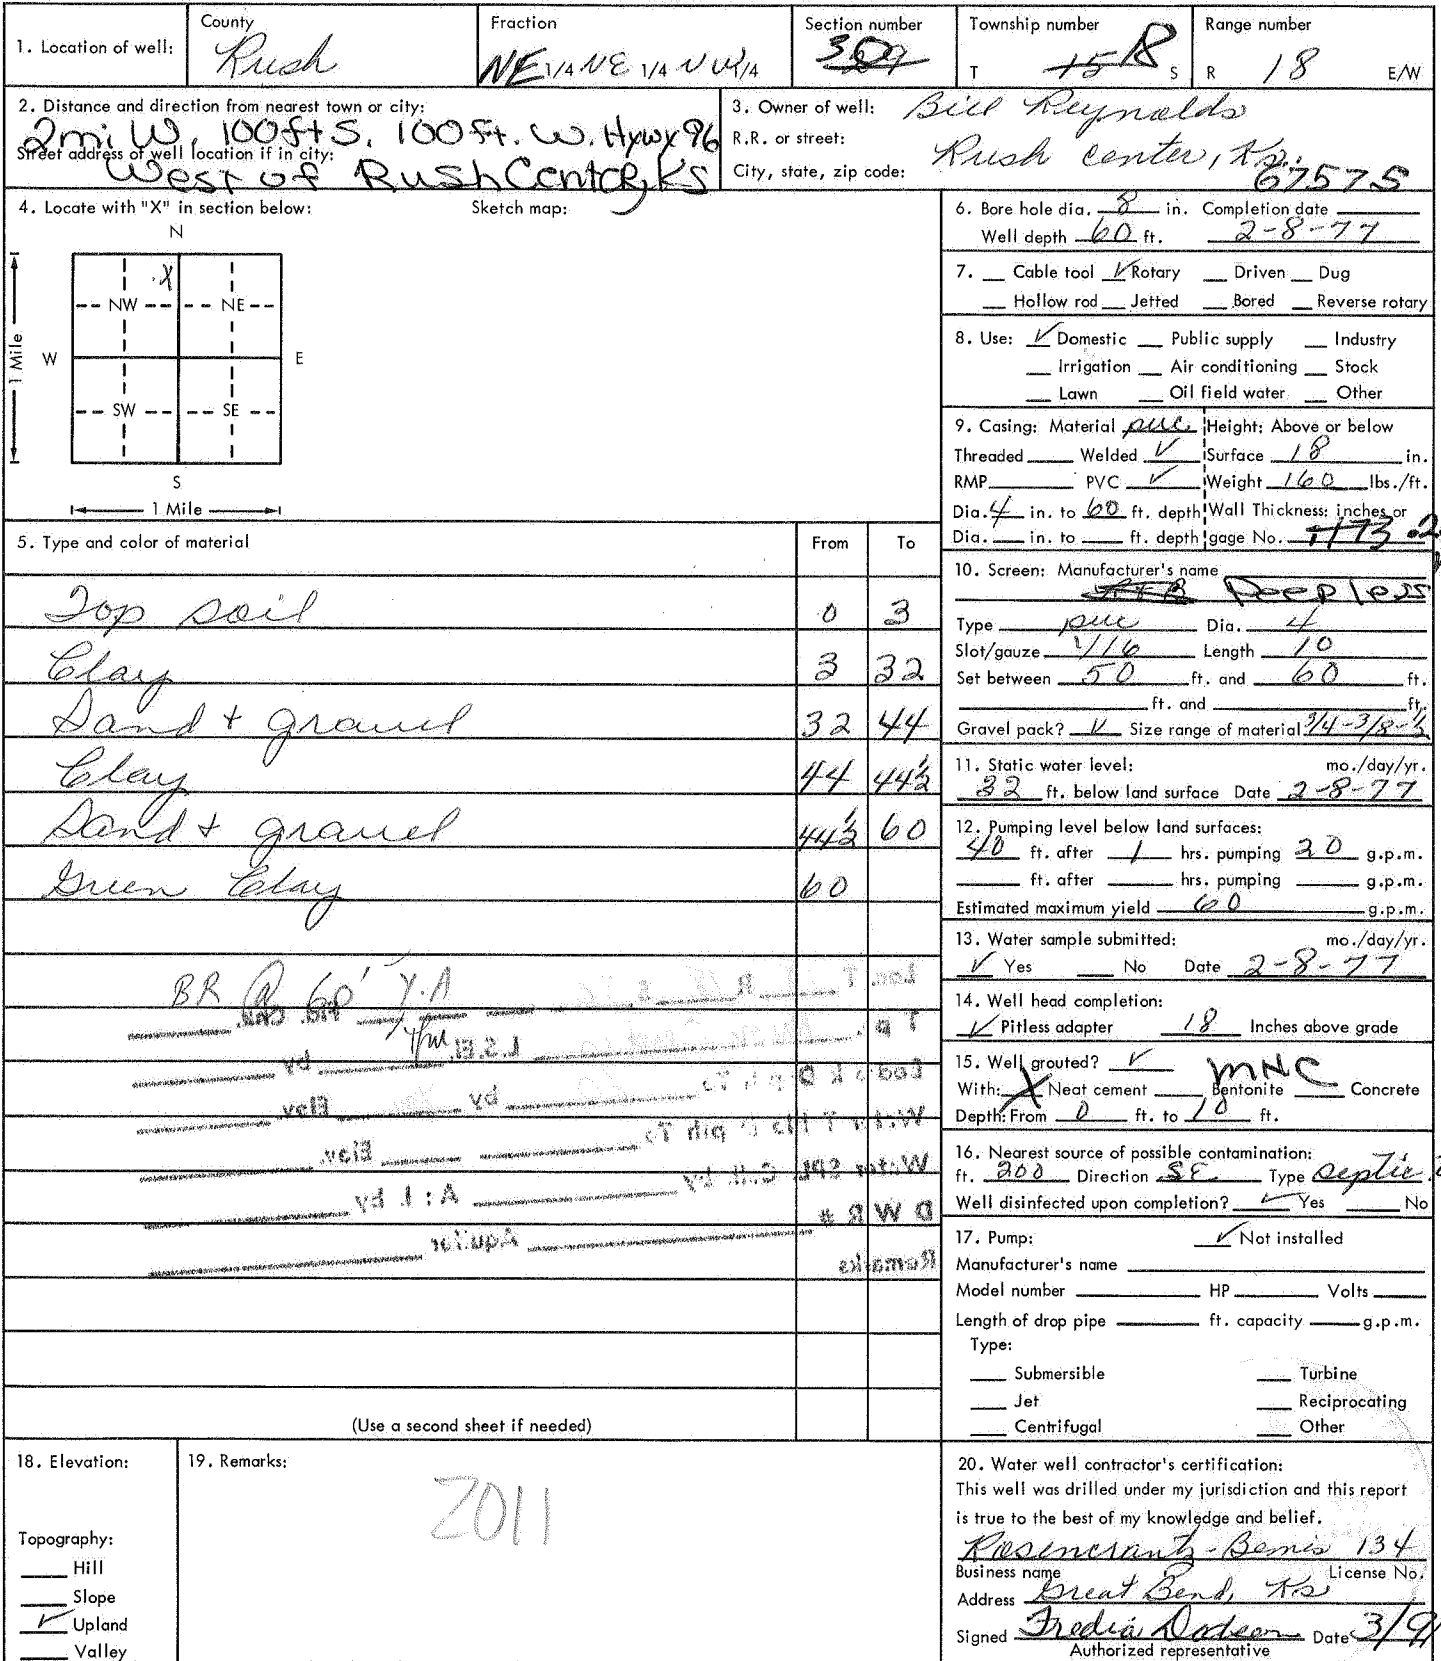 1. Location of well: County Rush Fraction NE 1/4 NE 1/4 NW 1/4 Section number Township number T 18 S Range number R 18 E/W
2. Distance and direction from nearest town or city:
2mi W, 100ft S, 100ft. W. Hywy 96
Street address of well location if in city:
West of Rush Center, KS
3. Owner of well: Bill Reynolds
R.R. or street:
City, state, zip code: Rush Center, Ks.
67575
4. Locate with "X" in section below:
Sketch map:
N
X
NW NE
W E
1 Mile
SW SE
S
1 Mile
5. Type and color of material From To
Top soil 0 3
Clay 3 32
Sand + gravel 32 44
Clay 44 44½
Sand + gravel 44½ 60
Green Clay 60
BR @ 60' Y.A
(Use a second sheet if needed)
6. Bore hole dia. 8 in. Completion date
Well depth 60 ft. 2-8-77
7. Cable tool ✓ Rotary Driven Dug
Hollow rod Jetted Bored Reverse rotary
8. Use: ✓ Domestic Public supply Industry
Irrigation Air conditioning Stock
Lawn Oil field water Other
9. Casing: Material pvc Height: Above or below
Threaded Welded ✓ Surface 18 in.
RMP PVC ✓ Weight 160 lbs./ft.
Dia. 4 in. to 60 ft. depth Wall Thickness: inches or
Dia. in. to ft. depth gage No.
10. Screen: Manufacturer's name
Peepless
Type pvc Dia. 4
Slot/gauze 1/16 Length 10
Set between 50 ft. and 60 ft.
ft. and ft.
Gravel pack? ✓ Size range of material
11. Static water level: mo./day/yr.
32 ft. below land surface Date 2-8-77
12. Pumping level below land surfaces:
40 ft. after 1 hrs. pumping 20 g.p.m.
ft. after hrs. pumping g.p.m.
Estimated maximum yield 60 g.p.m.
13. Water sample submitted: mo./day/yr.
✓ Yes No Date 2-8-77
14. Well head completion:
✓ Pitless adapter 18 Inches above grade
15. Well grouted? ✓ MNC
With: X Neat cement Bentonite Concrete
Depth: From 0 ft. to 10 ft.
16. Nearest source of possible contamination:
ft. 200 Direction SE Type septic
Well disinfected upon completion? ✓ Yes No
17. Pump: ✓ Not installed
Manufacturer's name
Model number HP Volts
Length of drop pipe ft. capacity g.p.m.
Type:
Submersible Turbine
Jet Reciprocating
Centrifugal Other
18. Elevation:
Topography:
Hill
Slope
✓ Upland
Valley
19. Remarks:
2011
20. Water well contractor's certification:
This well was drilled under my jurisdiction and this report
is true to the best of my knowledge and belief.
Rosencrantz-Bemis 134
Business name License No.
Address Great Bend, Ks
Signed Fredia Dodson Date 3/9/
Authorized representative